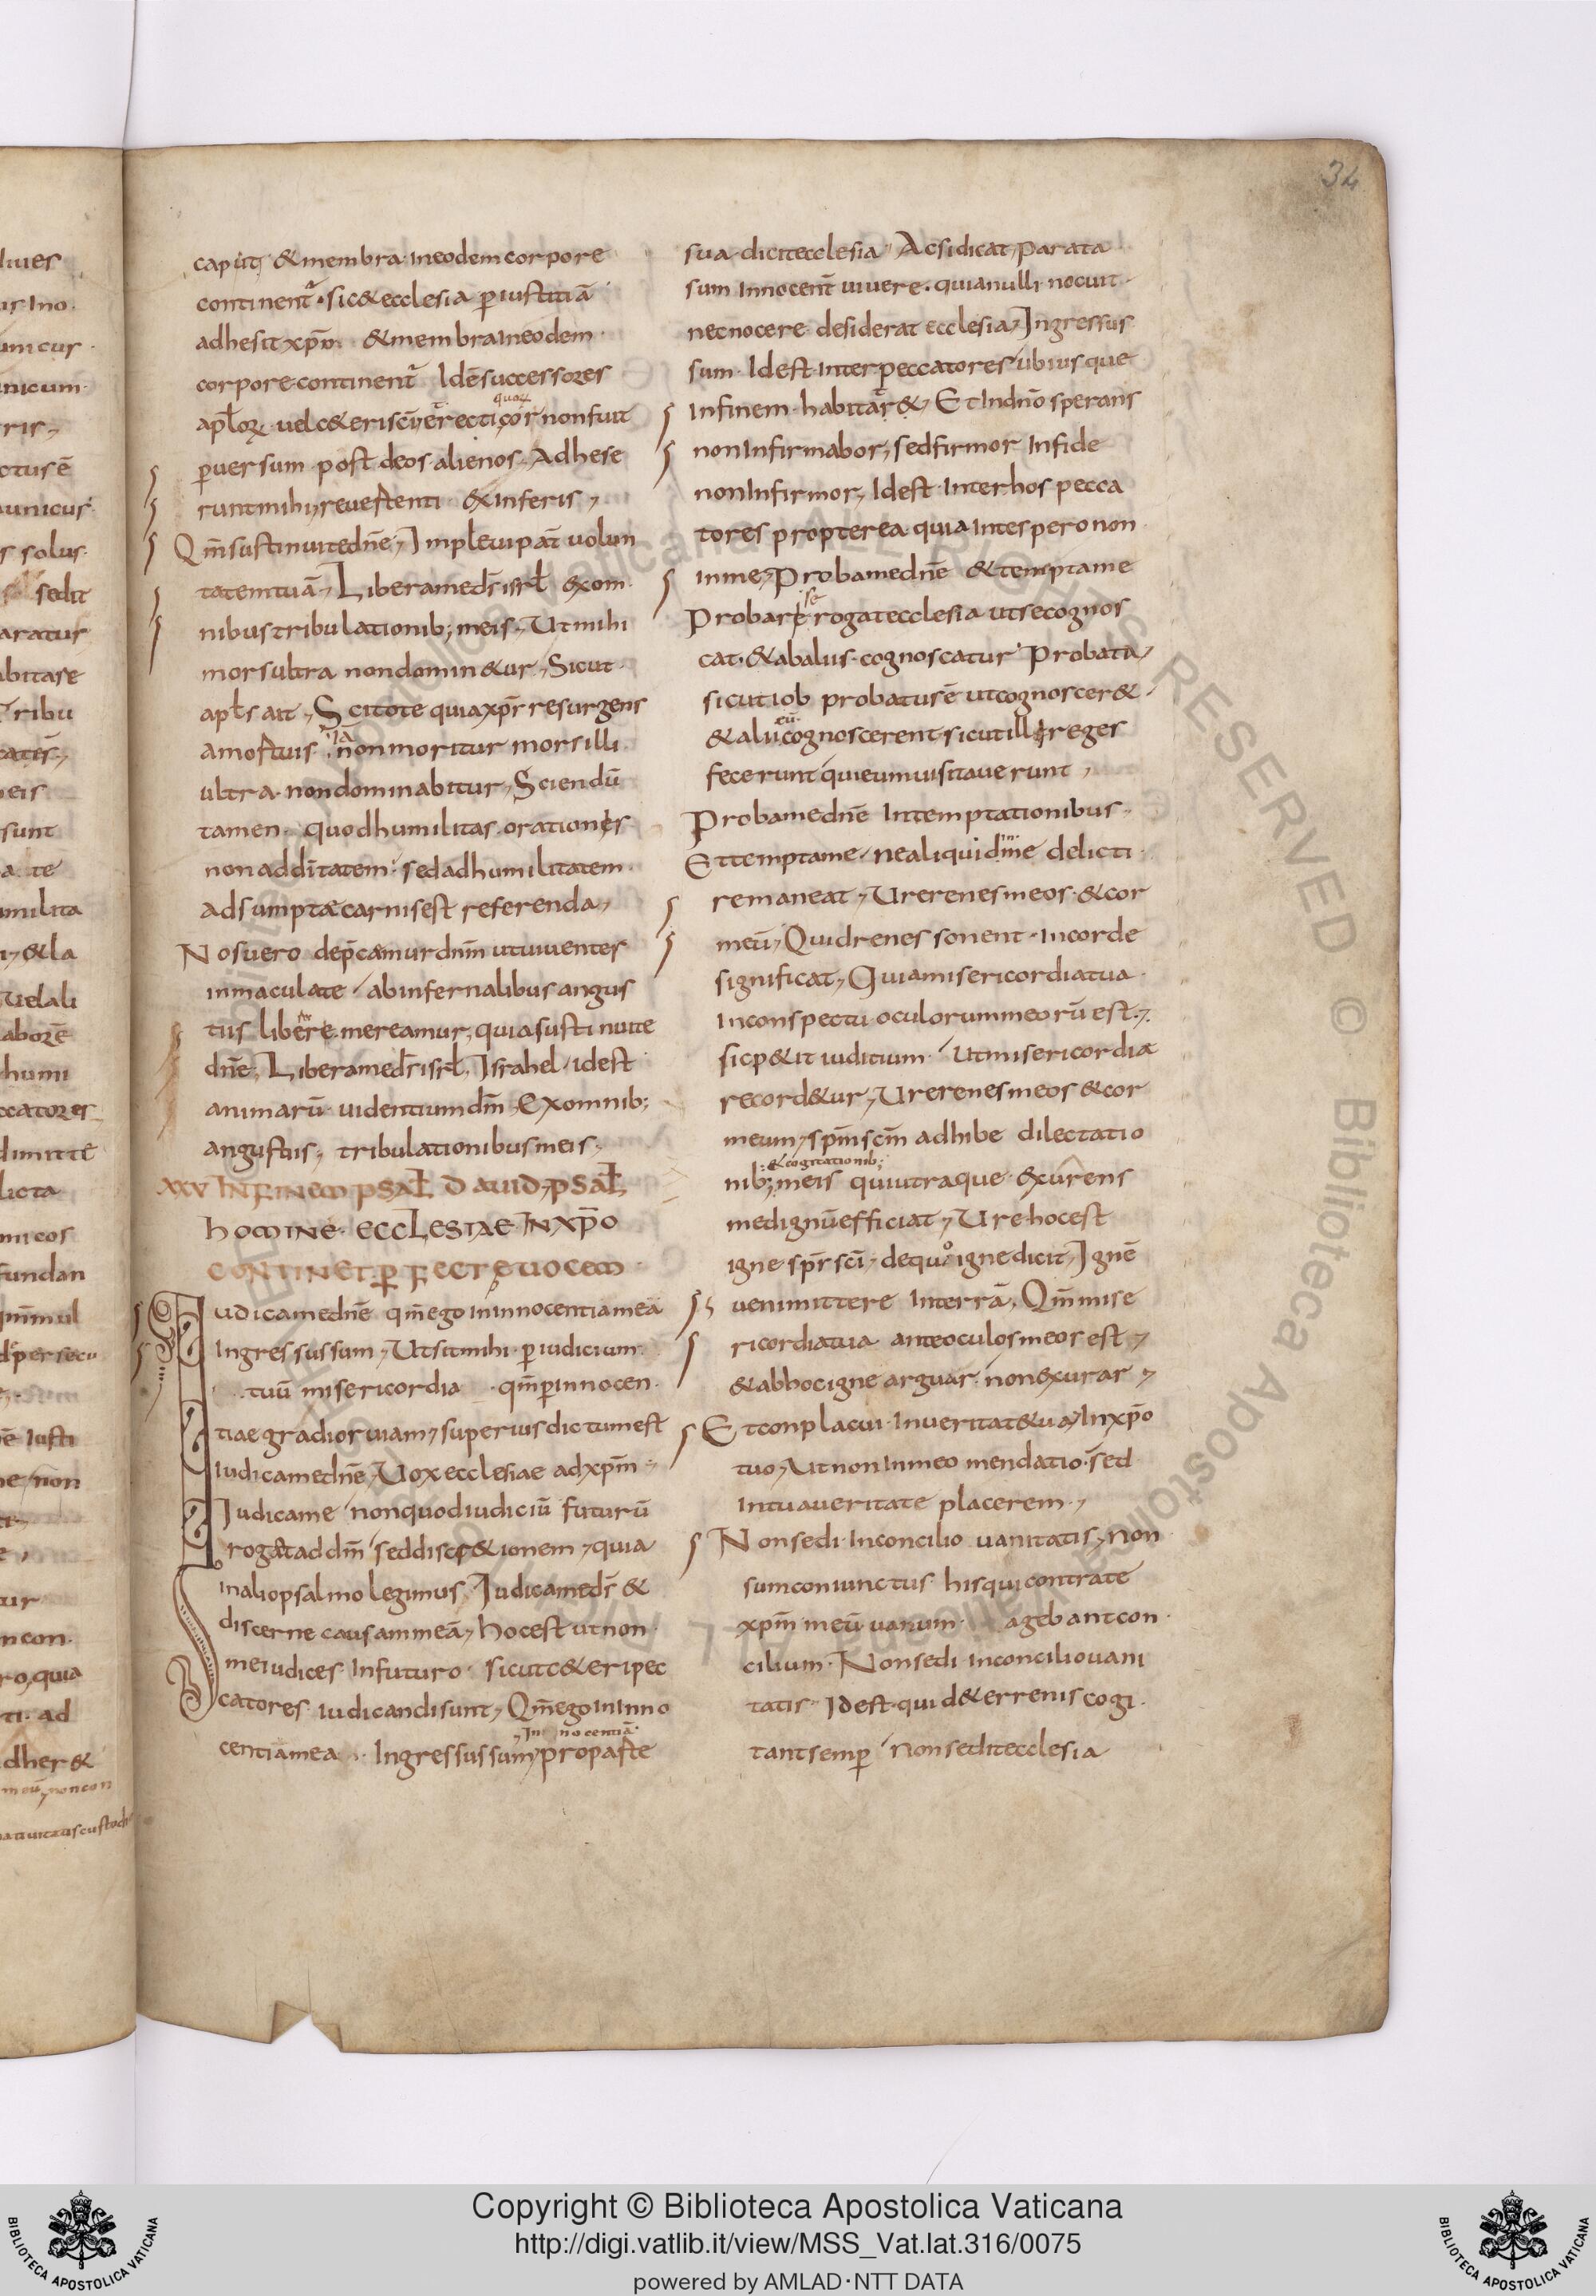 34
caput & membra in eodem corpore
continent᷒ · sic & ecclesia ꝑ iustitiā
adhesit xp̄o & membra in eodem
corpore continent᷒ Id ē successores
apl̄oꝝ uel c&eri sc̄i
non fuit
ꝑuersum post deos alienos, Adhese
runt mihi, reuertenti ex inferis,
Qm̄ sustinui te dn̄e, Impleui pat̄ volun
tatem tuā, Libera me ds̄ isrl̄ ex om
nibus tribulationib; meis, Ut mihi
mors ultra non domin&ur, Sicut
apl̄s ait, Scitote quia xp̄s resurgens
a mortuis iā non moritur mors illi
ultra non dominabitur, Sciendū
tamen quod humilitas orationis
non ad ditatem sed ad humilitatem
adsumptae carnis est referenda,
Nos uero dep̄camur dn̄m ut uiuentes
inmaculate ab infernalibus angus
tiis libere mereamur, quia sustinui te
dn̄e, Libera me ds̄ isrl̄, Israhel id est
animarū uidentium dm̄, Ex omnib;
angustiis, tribulationibus meis,
XXV IN FINEM PSAL̄ DAUID, PSAL̄
HOMINE ECCLESIAE IN XP̄O
CONTINET PERFECTE UOCEM
Iudica me dn̄e qm̄ ego in innocentia meā
Ingressus sum, Ut sit mihi ꝑ iudicium
tuū misericordia qm̄ ꝑ innocen
tiae gradior uiam, superius dictum est
iudica me dn̄e, Uox ecclesiae ad xp̄m
Iudica me non quod iudiciū futurū
rogat ad dm̄ sed discr&ionem, quia
in alio psalmo legimus, Iudica me ds̄ &
discerne causam meā, hoc est ut non
me iudices in futuro sicut c&eri pec
catores iudicandi sunt, Qm̄ ego in inno
In nocentiā
centia mea Ingressus sum, pro parte
sua dicit ecclesia Ac si dicat, Parata
sum innocent̄ uiuere · quia nulli nocuit
nec nocere desiderat ecclesia, Ingressus
sum Id est inter peccatores ubi usque
in finem habitar&, Et in dn̄o sperans
non infirmabor, sed firmor in fide
non infirmor, Id est inter hos pecca
tores propterea quia in te spero non
in me, Proba me dn̄e & tempta me
Probare se rogat ecclesia ut se cognos
cat · & ab aliis cognoscatur Probata,
sicut iob probatus ē ut cognoscer&
& alii eū cognoscerent sicut illi reges
fecerunt qui eum uisitauerunt,
Proba me dn̄e in temptationibus
Et tempta me, ne aliquid in me delicti
remaneat, Ure renes meos & cor
meū, Quid renes sonent in corde
significat, Quia misericordia tua
in conspectu oculorum meorū est,
sic p&it iuditium ut misericordia
record&ur, Ure renes meos & cor
meum, sp̄m scm̄ adhibe dilectatio
& cogitationib;
nib; meis qui utraque exurens
me dignū efficiat, Ure hoc est
igne sp̄s sc̄i, de quo igne dicit, Ignē
ueni mittere in terrā, Qm̄ mise
ricordia tua ante oculos meos est,
& ab hoc igne arguar non exurar,
Et conplacui in ueritate tua, In xp̄o
tuo, Ut non in meo mendatio sed
in tua ueritate placerem,
Non sedi in concilio uanitatis, non
sum coniunctus his qui contra te
xp̄m meū uanum agebant con
cilium Non sedi in concilio uani
tatis Id est quid & errenis cogi
tant semꝑ Non sedit ecclesia
Copyright © Biblioteca Apostolica Vaticana
http://digi.vatlib.it/view/MSS_Vat.lat.316/0075
powered by AMLAD·NTT DATA
BIBLIOTECA APOSTOLICA VATICANA
BIBLIOTECA APOSTOLICA VATICANA